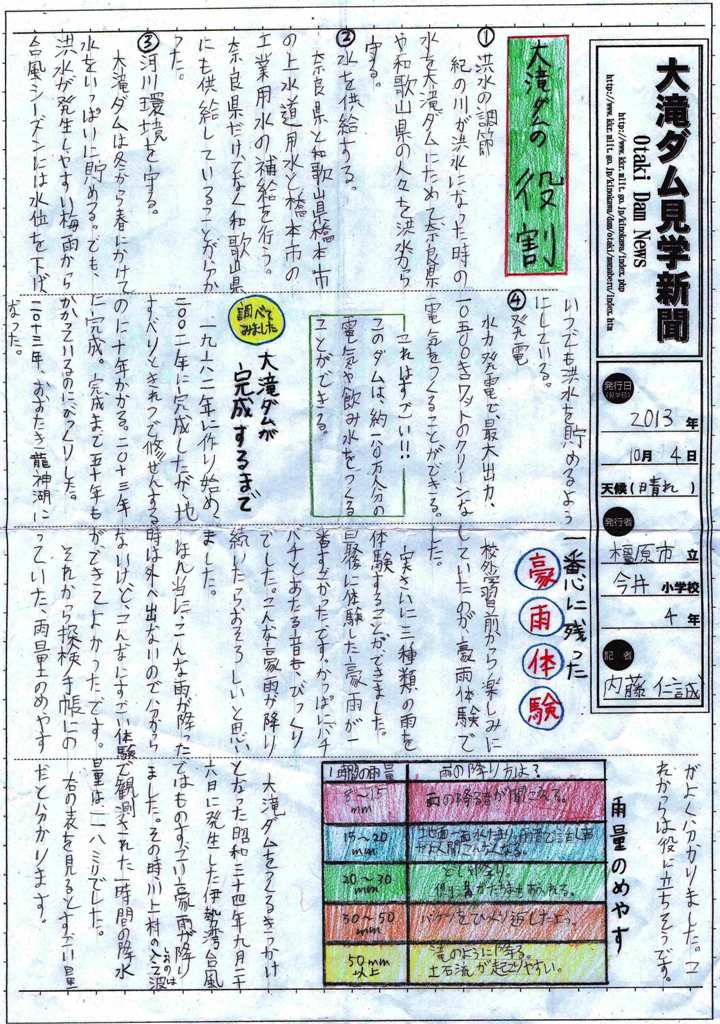 大滝ダム見学新聞
Otaki Dam News
http://www.kkr.mlit.go.jp/kinokawa/index.php
発行日
2013年
10月4日
天候(晴れ)
発行者
橿原市立
今井小学校
4年
記者
内藤仁誠
大滝ダムの役割
①洪水の調節
紀の川が洪水になった時の
水を大滝ダムにためて奈良県
や和歌山県の人々を洪水から
守る。
②水を供給する。
奈良県と和歌山県橋本市
の上水道用水と橋本市の
工業用水の補給を行う。
奈良県だけでなく和歌山県
にも供給していることが分か
った。
③河川環境を守る。
大滝ダムは冬から春にかけて
水をいっぱいに貯める。でも、
洪水が発生しやすい梅雨から
台風シーズンには水位を下げ、
いつでも洪水を貯めるよう
にしている。
④発電
水力発電で、最大出力、
一〇五〇〇キロワットのクリーンな
電気をつくることができる。
これはすごい!!
このダムは、約一八〇万人分の
電気や飲み水をつくる
ことができる。
調べてみました
大滝ダムが
完成するまで
一九六二年に作り始め、
二〇〇二年に完成したが、地
すべりときれつで修ぜんする
のに十年かかる。二〇十三年
に完成。完成まで五十年も
かかっているのにびっくりした。
二〇十三年、おおたき龍神湖に
なった。
一番心に残った
豪雨体験
校外学習前から楽しみに
していたのが、豪雨体験で
した。
実さいに三種類の雨を
体験することができました。
最後に体験した豪雨が一
番すごかったです。かっぱにバチ
バチとあたる音も、びっくり
でした。こんな豪雨が降り
続いたらおそろしいと思い
ました。
ほん当に、こんな雨が降った
時は外へ出ないので分から
ないけど、こんなにすごい体験
ができてよかったです。
それから探検手帳にの
っていた、雨量のめやす
がよく分かりました。こ
れからは役に立ちそうです。
雨量のめやす
1時間の雨量 雨の降り方は?
8~15mm 雨の降る音が聞こえる。
15~20mm 地面一面水たまり。雨音で話し声がよく聞こえなくなる。
20~30mm どしゃ降り。
30~50mm バケツをひっくり返したよう。
50mm以上 滝のように降る。
土石流が起こりやすい。
大滝ダムをつくるきっかけ
となった昭和三十四年九月二十
六日に発生した伊勢湾台風
ではものすごい豪雨が降り
ました。その時川上村の入之波
しおのは
で観測された一時間の降水
量は一一八ミリでした。
右の表を見るとすごい量
だと分かります。